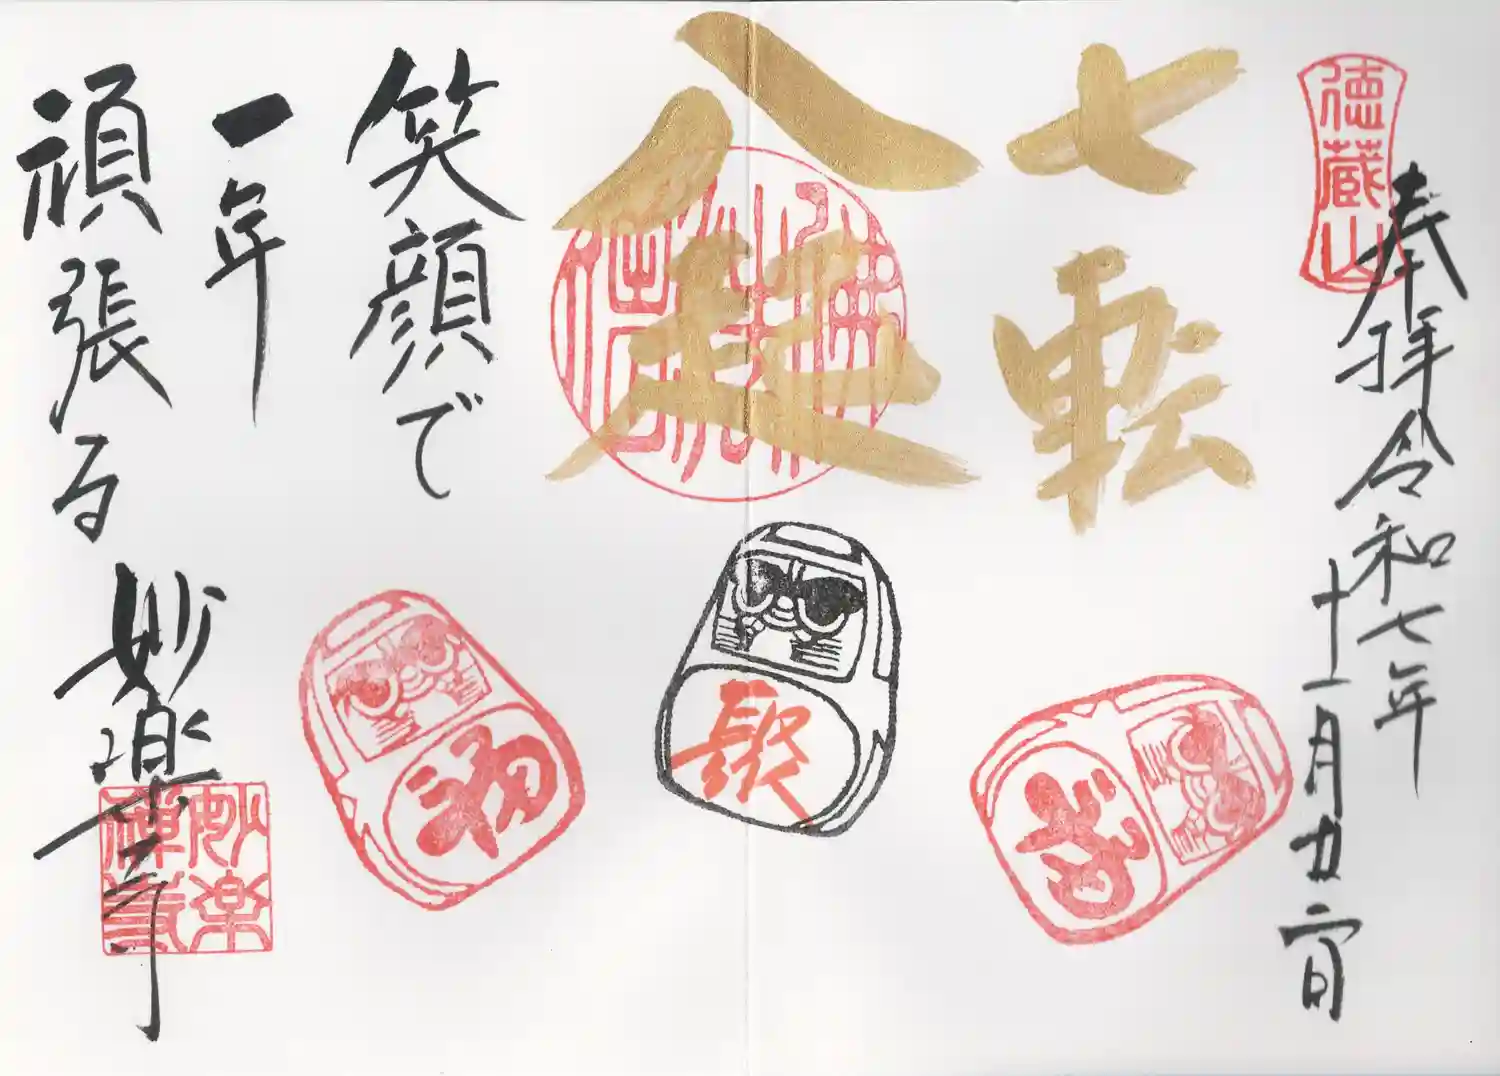 徳蔵山
奉拝 令和七年
十一月廿二日
七転
八起
笑顔で
一年
頑張る
妙楽寺
妙楽
禅寺